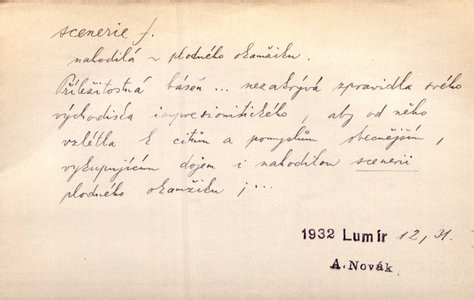 scenerie f.
nahodilá ~ plodného okamžiku.
Příležitostná báseň ... nezakrývá zpravidla svého
východiska impresionistického, aby od něho
vzlétla k citům a pomyslům obecnějším,
vykupujícím dojem i nahodilou scenerii
plodného okamžiku; ...
1932 Lumír 12, 31.
A. Novák